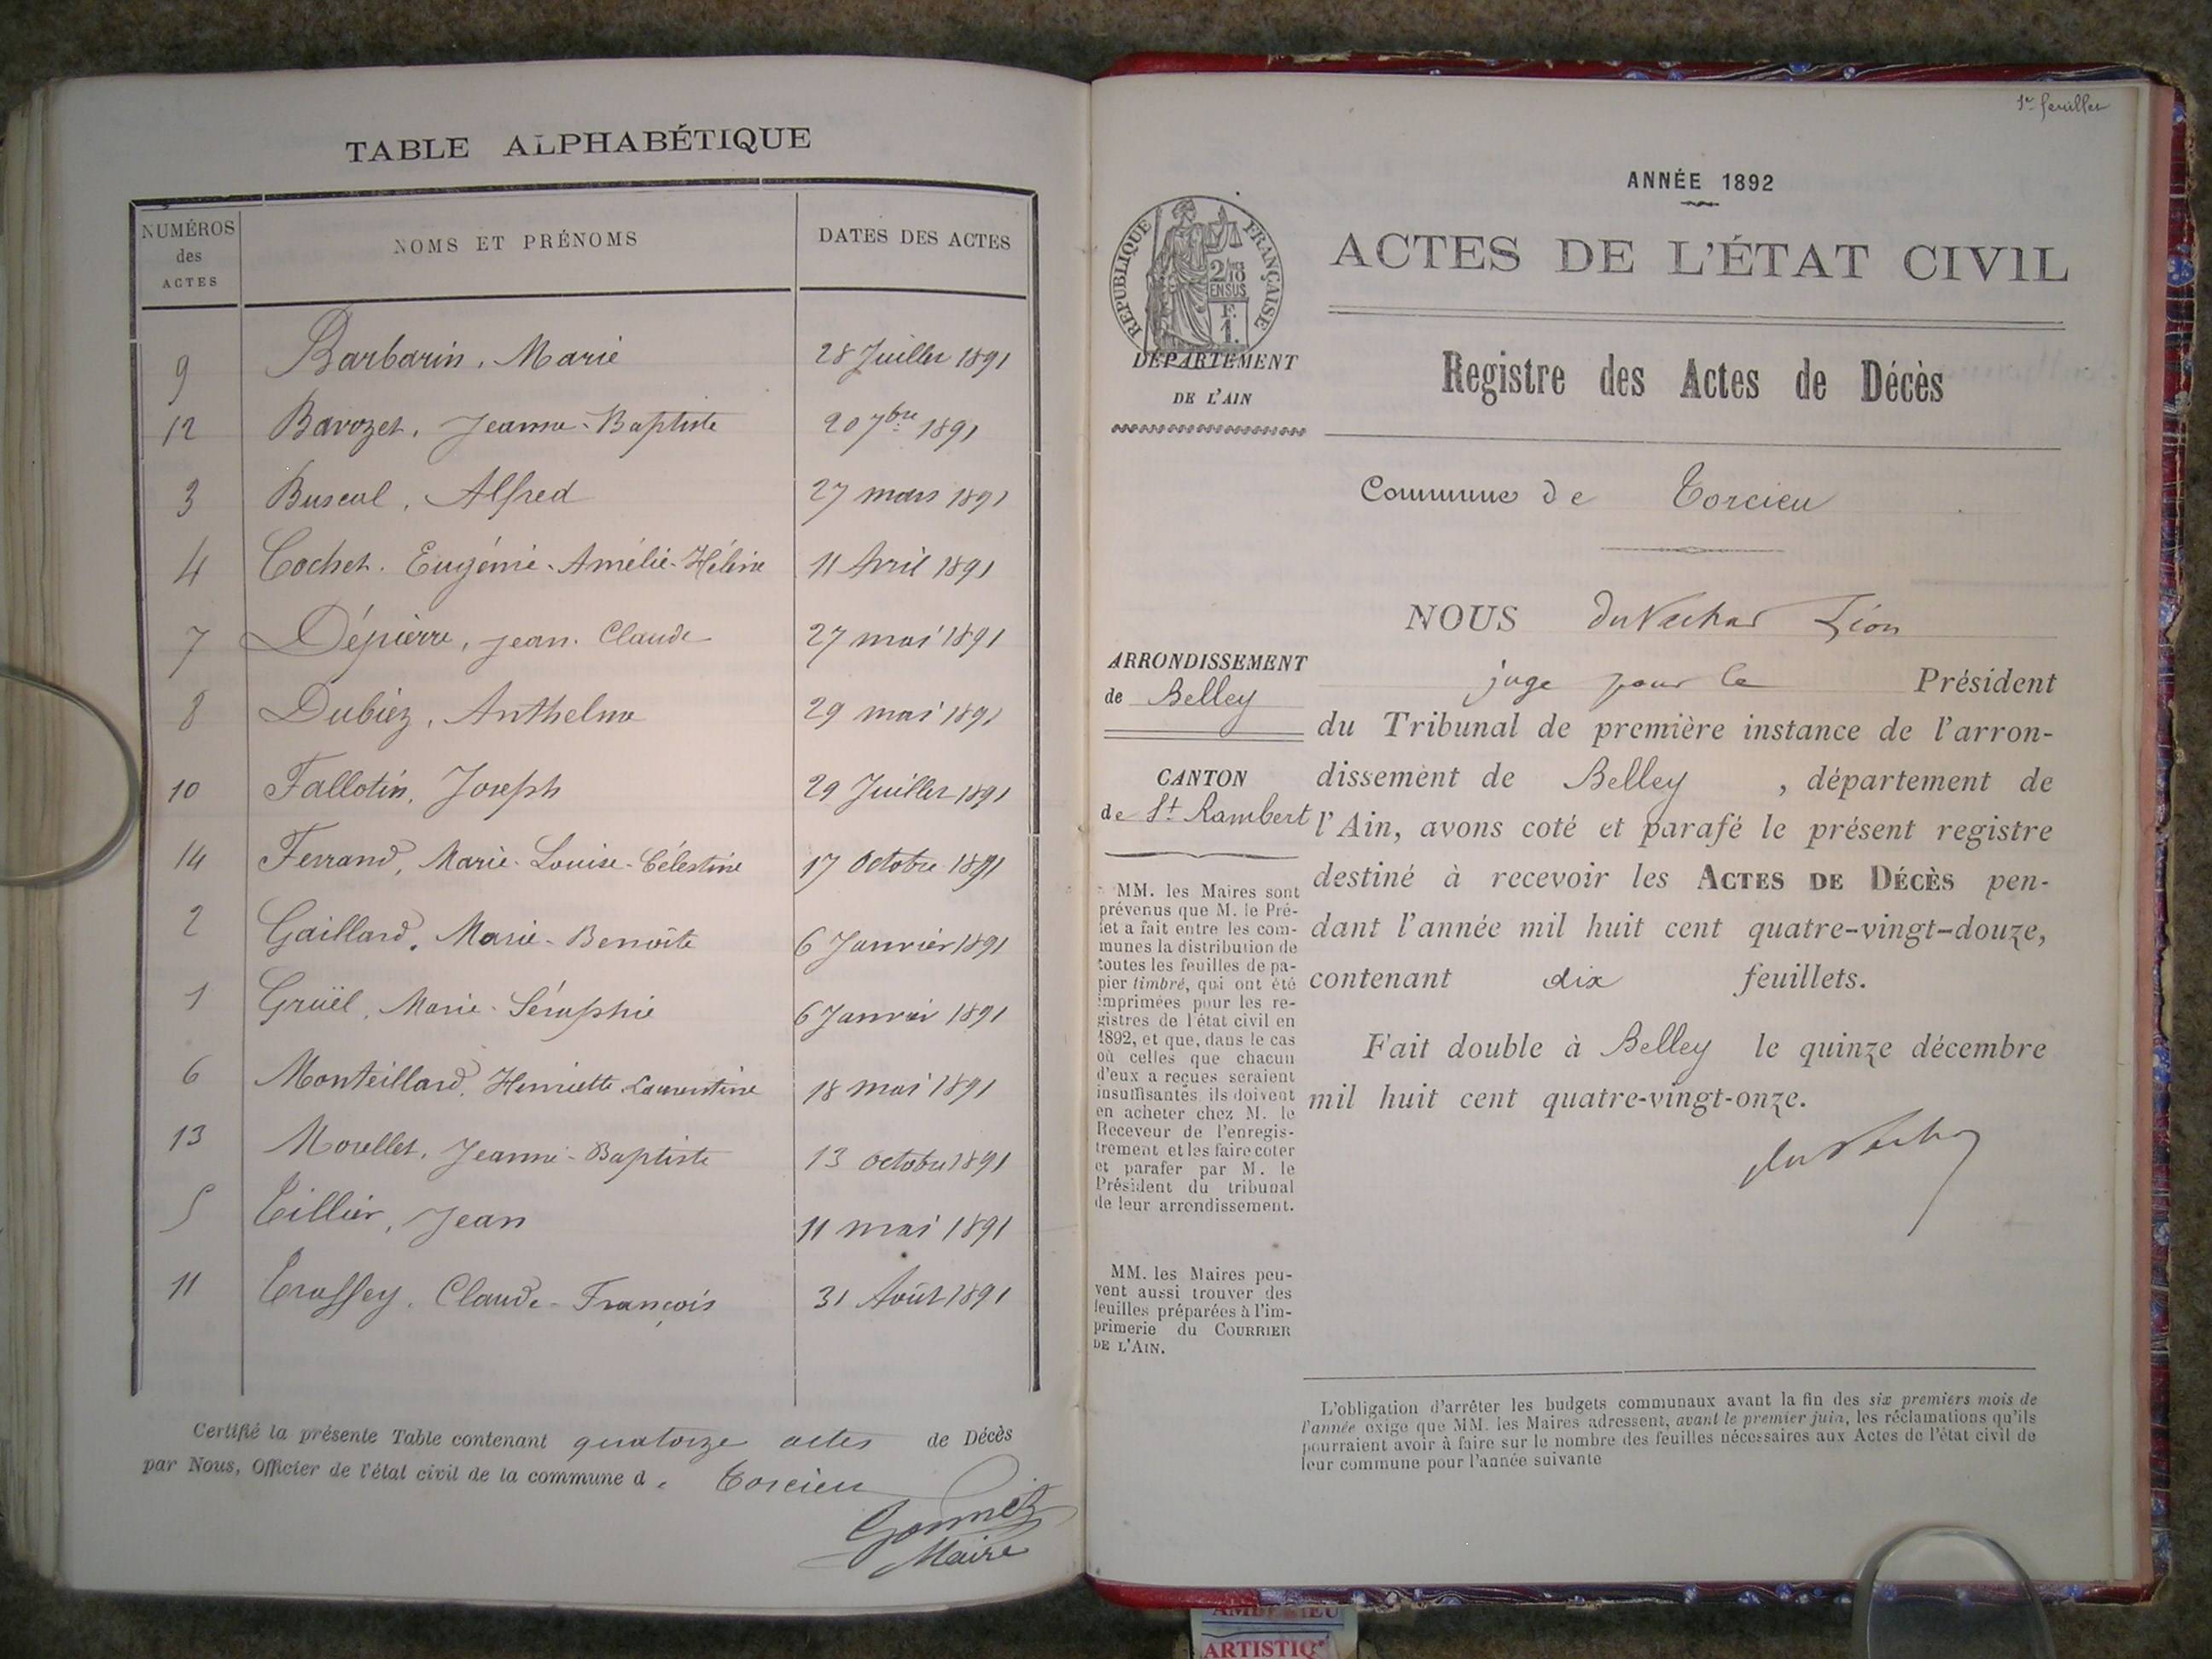 TABLE ALPHABÉTIQUE
NUMÉROS des ACTES
NOMS ET PRÉNOMS
DATES DES ACTES
9 Barbarin, Marie 28 Juillet 1891
12 Bavozet, Jeanne-Baptiste 20 7bre 1891
3 Buscal, Alfred 27 mars 1891
4 Cochet. Eugénie-Amélie-Hélène 11 Avril 1891
7 Dépierre, Jean-Claude 27 mai 1891
8 Dubiez, Anthelme 29 mai 1891
10 Fallotin, Joseph 29 Juillet 1891
14 Ferrand, Marie-Louise-Célestine 17 Octobre 1891
2 Gaillard, Marie-Benoîte 6 Janvier 1891
1 Gruël, Marie-Séraphie 6 Janvier 1891
6 Monteillard, Henriette Laurentine 18 mai 1891
13 Morellet, Jeanne-Baptiste 13 octobre 1891
5 Tillier, Jean 11 mai 1891
11 Troffey, Claude-François 31 Août 1891
Certifié la présente Table contenant quatorze actes de Décès
par Nous, Officier de l'état civil de la commune d. Torcieu
Maire
1er feuillet
ANNÉE 1892
RÉPUBLIQUE FRANÇAISE
2/10 EN SUS
F. 1.
ACTES DE L'ÉTAT CIVIL
DÉPARTEMENT
DE L'AIN
Registre des Actes de Décès
Commune de Torcieu
ARRONDISSEMENT
de Belley
CANTON
de St Rambert
MM. les Maires sont
prévenus que M. le Pré-
fet a fait entre les com-
munes la distribution de
toutes les feuilles de pa-
pier timbré, qui ont été
imprimées pour les re-
gistres de l'état civil en
1892, et que, dans le cas
où celles que chacun
d'eux a reçues seraient
insuffisantes, ils doivent
en acheter chez M. le
Receveur de l'enregis-
trement et les faire coter
et parafer par M. le
Président du tribunal
de leur arrondissement.
MM. les Maires peu-
vent aussi trouver des
feuilles préparées à l'im-
primerie du COURRIER
DE L'AIN.
NOUS Léon
juge pour le Président
du Tribunal de première instance de l'arron-
dissement de Belley , département de
l'Ain, avons coté et parafé le présent registre
destiné à recevoir les ACTES DE DÉCÈS pen-
dant l'année mil huit cent quatre-vingt-douze,
contenant dix feuillets.
Fait double à Belley le quinze décembre
mil huit cent quatre-vingt-onze.
L'obligation d'arrêter les budgets communaux avant la fin des six premiers mois de
l'année exige que MM. les Maires adressent, avant le premier juin, les réclamations qu'ils
pourraient avoir à faire sur le nombre des feuilles nécessaires aux Actes de l'état civil de
leur commune pour l'année suivante
ARTISTIQ